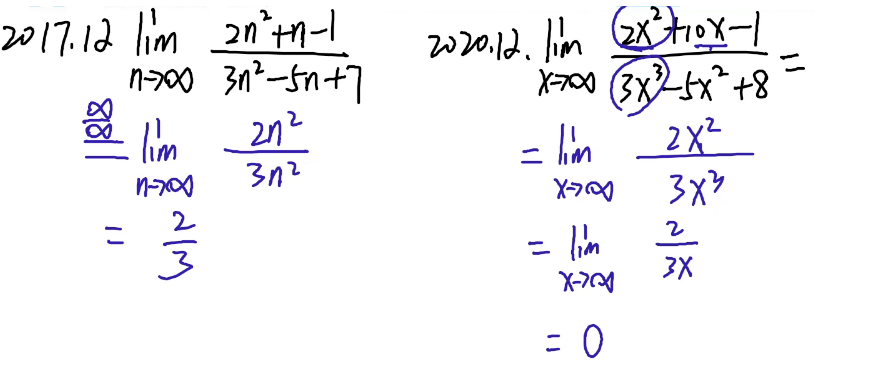 2017.12 lim n→∞ (2n²+n-1)/(3n²-5n+7)
∞/∞ = lim n→∞ 2n²/3n²
= 2/3
2020.12. lim x→∞ (2x²+10x-1)/(3x³-5x²+8) =
= lim x→∞ 2x²/3x³
= lim x→∞ 2/3x
= 0